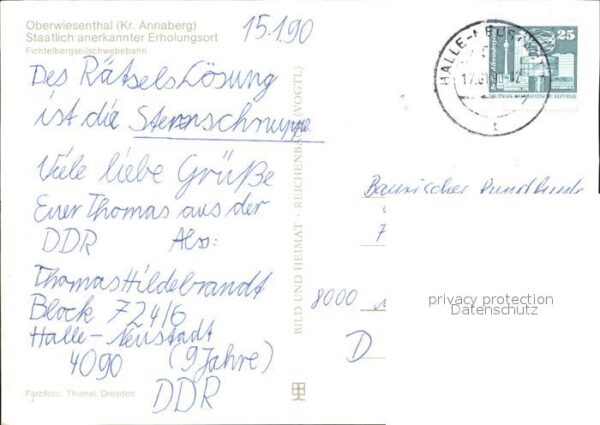 Oberwiesenthal (Kr. Annaberg)
Staatlich anerkannter Erholungsort
Fichtelbergseilschwebebahn
15.1.90
Des Rätsels Lösung
ist die Sternschnuppe
Viele liebe Grüße
Euer Thomas aus der
DDR Also:
Thomas Hildebrandt
Block 724/6
Halle-Neustadt
4090 (9 Jahre)
DDR
Farbfoto: Thienel, Dresden
BILD UND HEIMAT · REICHENBACH (VOGTL)
HALLE-NEUSTADT
17.01.90
25
DEUTSCHE DEMOKRATISCHE REPUBLIK
Bayrischer Rundfunk
8000
D
privacy protection
Datenschutz